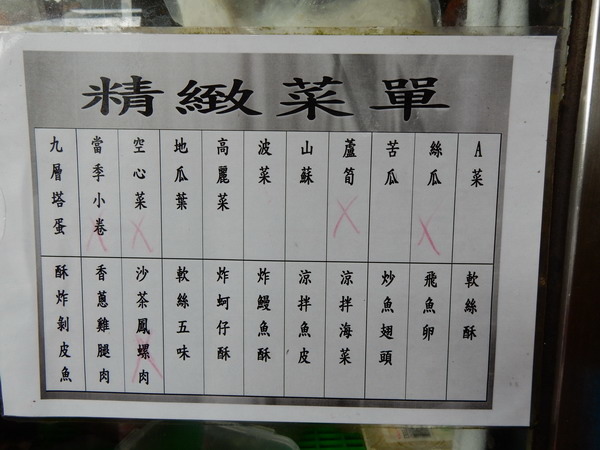 精緻菜單
A菜
絲瓜
苦瓜
蘆筍
山蘇
波菜
高麗菜
地瓜葉
空心菜
當季小卷
九層塔蛋
軟絲酥
飛魚卵
炒魚翅頭
涼拌海菜
涼拌魚皮
炸鰻魚酥
炸蚵仔酥
軟絲五味
沙茶鳳螺肉
香蔥雞腿肉
酥炸剝皮魚